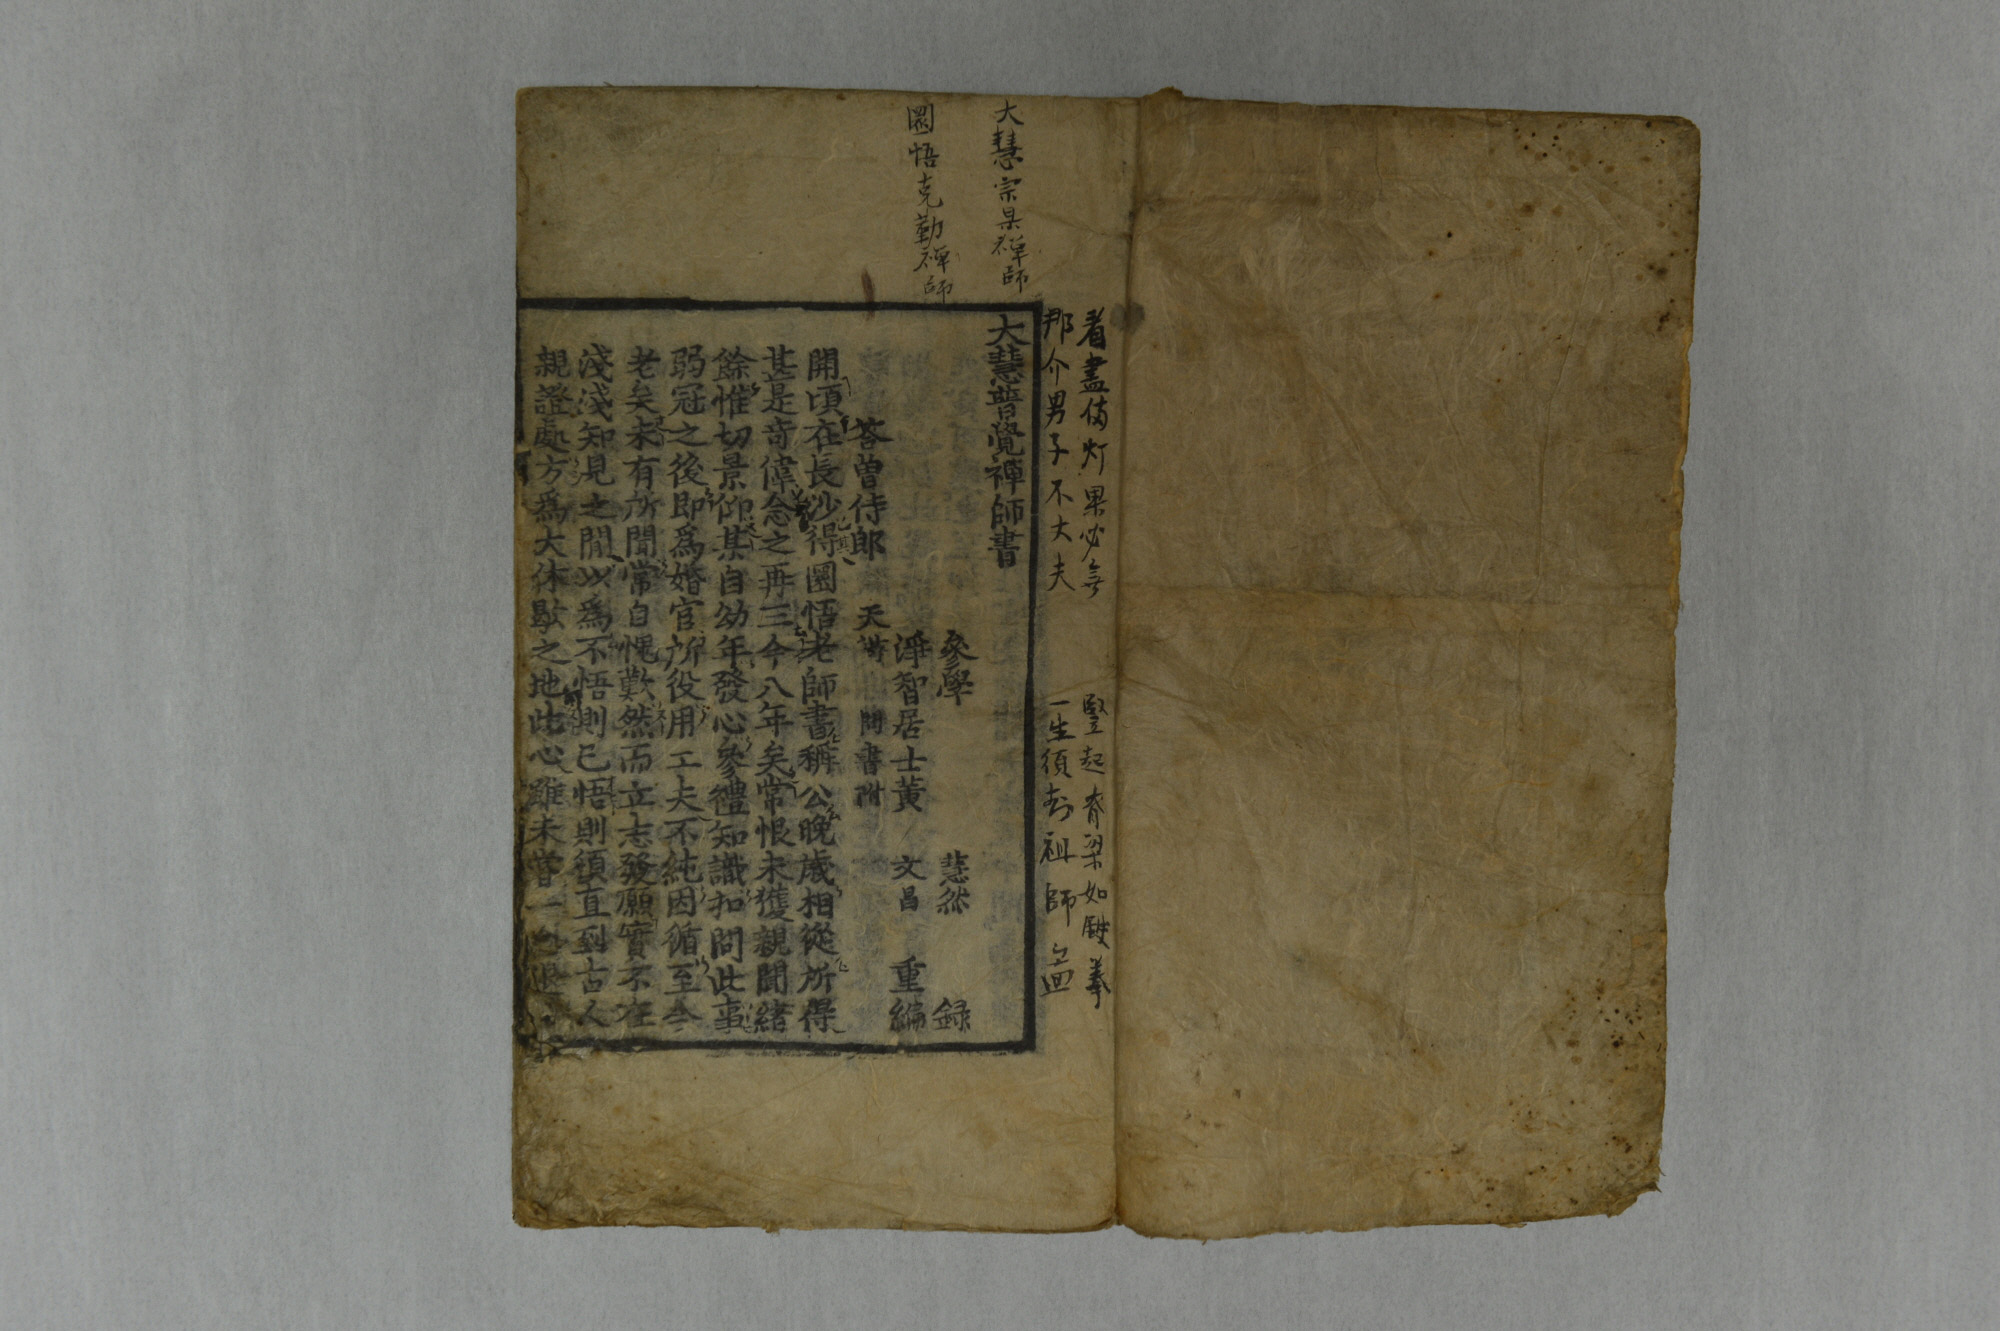 大慧宗杲禪師
圜悟克勤禪師
看盡傳灯果必無
豎起脊梁如鐵拳
那介男子不大夫
一生須到祖師
大慧普覺禪師書
參學 慧然 録
淨智居士黃 文昌 重編
答曾侍郎 天遊 問書附
開頃在長沙得圜悟老師書稱公晚歲相從所得
甚是奇偉念之再三今八年矣常恨未獲親聞緒
餘惟切景仰某自幼年發心參禮知識扣問此事
弱冠之後即爲婚官所役用工夫不純因循至今
老矣未有所聞常自愧歎然而立志發願實不在
淺淺知見之間以爲不悟則已悟則須直到古人
親證處方爲大休歇之地此心雖未甞一